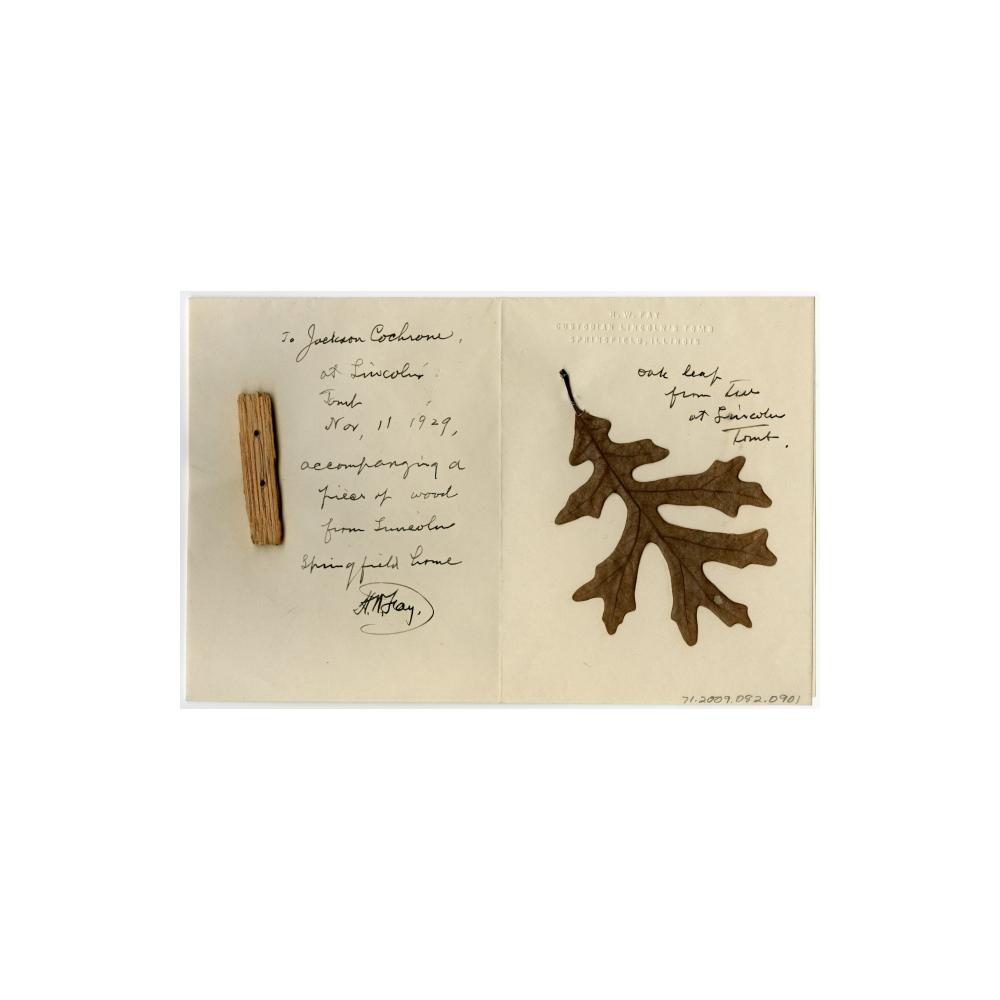 To Jackson Cochrane,
at Lincoln's
Tomb
Nov, 11 1929,
accompanging a
piece of wood
from Lincoln
Springfield home
H.W. Fay.
H. W. FAY
CUSTODIAN LINCOLN'S TOMB
SPRINGFIELD, ILLINOIS
oak leaf
from tree
at Lincoln
Tomb.
71.2009.082.0901